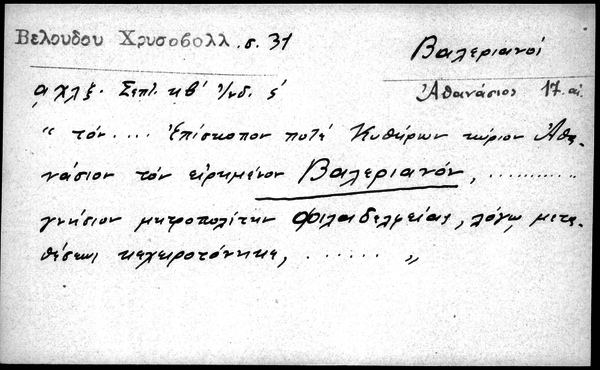 Βελουδου Χρυσοβολλ. σ. 31
Βαλεριανοί
αχλξ. Σεπτ. κβ' Ἰνδ. ς'
Ἀθανάσιος 17. αἰ.
“ τόν .... Ἐπίσκοπον ποτέ Κυθήρων κύριον Ἀθα-
νάσιον τόν εἰρημένον Βαλεριανόν, ............
γνήσιον μητροπολίτην Φιλαδελφείας, λόγῳ μετα-
θέσεως κεχειροτόνηκε, ........ „